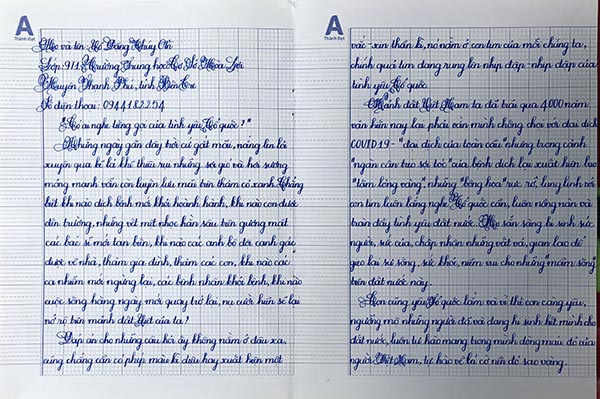 A
Thành Đạt
Họ và tên: Hồ Đăng Thúy Oi
Lớp: 9/1 Trường Trung học Cơ Sở Hòa Lợi
Huyện Thạnh Phú, tỉnh Bến Tre
Số điện thoại: 0944182254
"Có ai nghe tiếng gọi của tình yêu Tổ quốc?"
Những ngày gần đây trời cứ gắt mãi, nắng lim lối
xuyên qua kẽ lá khẽ thiu rui nhưng sợi gió và hơi sương
mỏng manh vẫn còn luyến lưu mãi trên thảm cỏ xanh. Chẳng
biết khi nào dịch bệnh mới khỏi hoành hành, khi nào con được
đến trường, những vệt mệt nhọc hằn sâu trên gương mặt
các bác sĩ mới tan biến, khi nào các anh bộ đội canh gác
được về nhà, thăm gia đình, thăm các con, khi nào các
ca nhiễm mới ngừng lại, các bệnh nhân khỏi bệnh, khi nào
cuộc sống hàng ngày mới quay trở lại, nụ cười hiền sẽ lại
nở rộ trên mảnh đất Việt của ta?
Đáp án cho những câu hỏi ấy không nằm ở đâu xa,
cũng chẳng cần có phép màu kì diệu hay xuất hiện một
A
Thành Đạt
vắc-xin thần kì, nó nằm ở con tim của mỗi chúng ta,
chính quả tim đang rung lên nhịp đập - nhịp đập của
tình yêu Tổ quốc.
Mảnh đất Việt Nam ta đã trải qua 4000 năm
văn hiến nay lại phải vằn mình chống chọi với đại dịch
COVID 19 - "đại dịch của toàn cầu" nhưng trong cảnh
"ngàn cân treo sợi tóc" của bệnh dịch lại xuất hiện bao
"tấm lòng vàng", những "bông hoa" rực rỡ, lung linh với
con tim luôn lắng nghe Tổ quốc cần, luôn nồng nàn và
tràn đầy tình yêu đất nước. Họ sẵn sàng hi sinh sức
người, sức của, chấp nhận những vất vả, gian lao để
gieo lại sự sống, sức khỏe, niềm vui cho những "mầm sống"
trên đất nước này.
Con cũng yêu Tổ quốc lắm và vì thế con càng yêu,
ngưỡng mộ những người đã và đang hi sinh hết mình cho
đất nước, luôn tự hào mang trong mình dòng máu đỏ của
người Việt Nam, tự hào về lá cờ nền đỏ sao vàng.